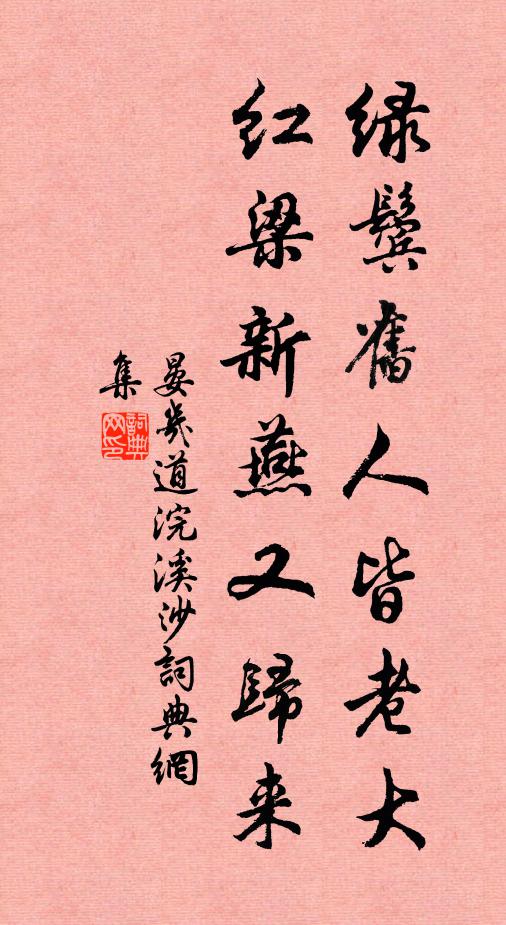 绿鬓舊人皆老大
红梁新燕又歸来
晏幾道浣溪沙詞典網
集
詞典网印